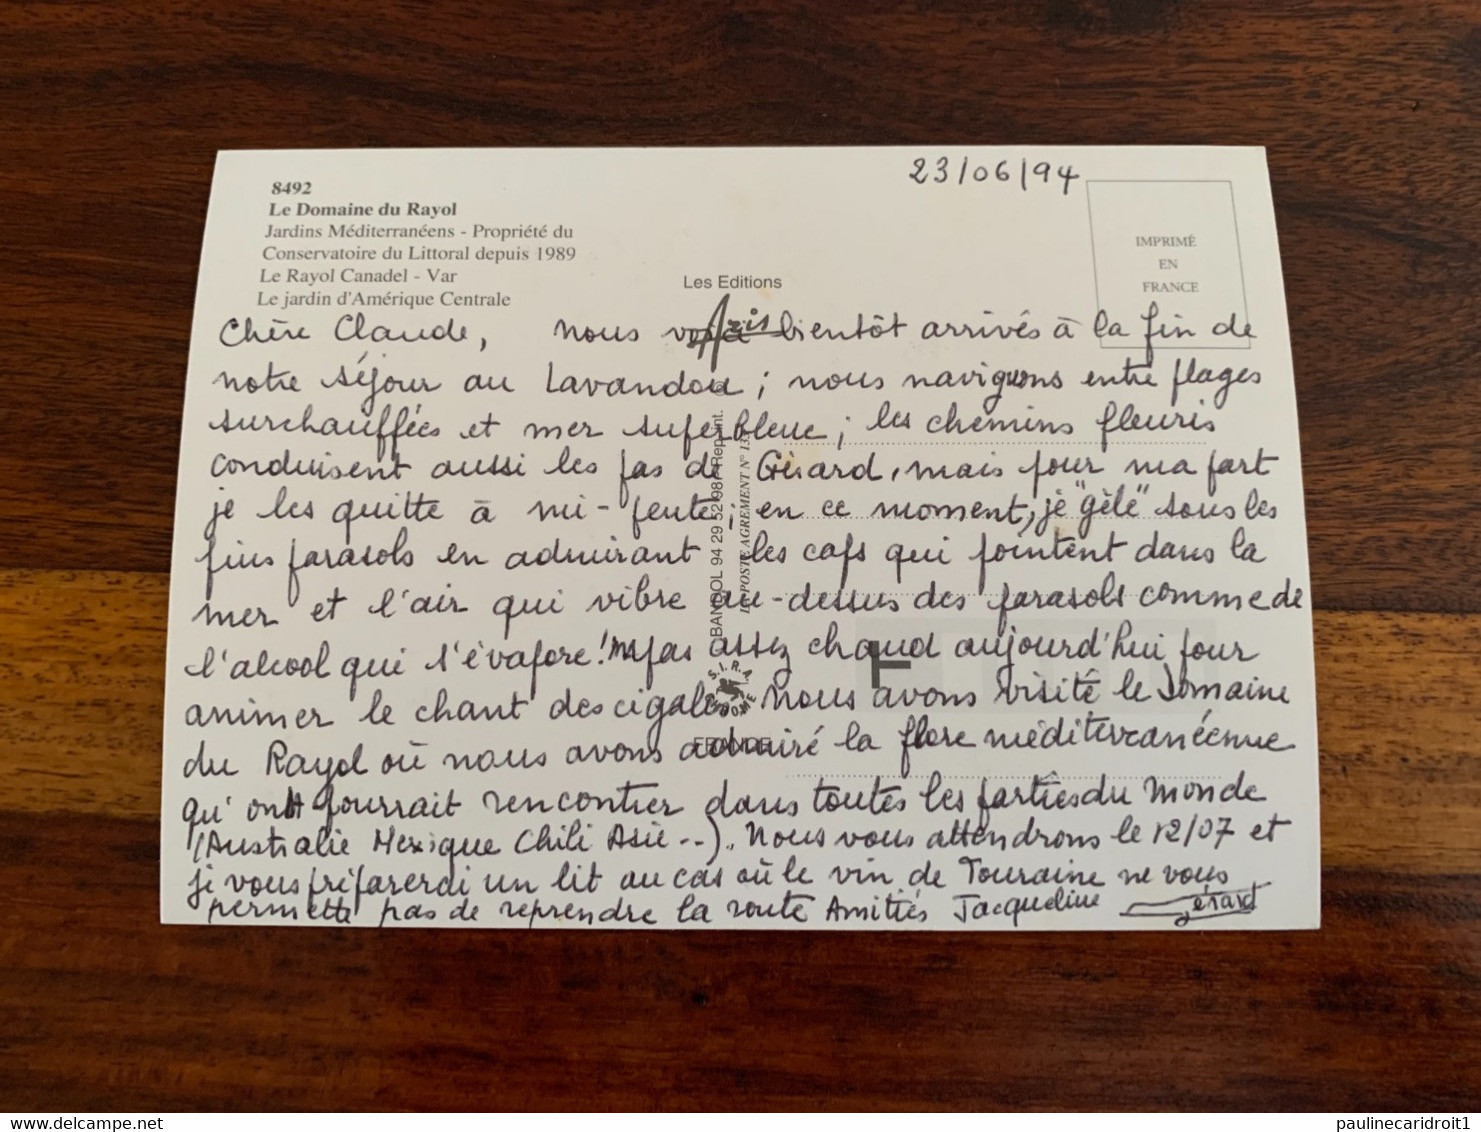 23/06/94
8492
Le Domaine du Rayol
Jardins Méditerranéens - Propriété du
Conservatoire du Littoral depuis 1989
Le Rayol Canadel - Var
Le jardin d'Amérique Centrale
IMPRIMÉ
EN
FRANCE
Les Editions
Aris
Chère Claude, nous voici bientôt arrivés à la fin de
notre séjour au Lavandou ; nous naviguons entre plages
surchauffées et mer superbleue ; les chemins fleuris
conduisent aussi les pas de Gérard, mais pour ma part
je les quitte à mi-pente ; en ce moment, je "gèle" sous les
pins parasols en admirant les caps qui pointent dans la
mer et l'air qui vibre au-dessus des parasols comme de
l'alcool qui s'évapore ! mais pas assez chaud aujourd'hui pour
animer le chant des cigales. Nous avons visité le Domaine
du Rayol où nous avons admiré la flore méditerranéenne
qu'on pourrait rencontrer dans toutes les parties du monde
(Australie Mexique Chili Asie --). Nous vous attendrons le 12/07 et
je vous préparerai un lit au cas où le vin de Touraine ne vous
permette pas de reprendre la route Amitiés Jacqueline Gérard
BANDOL 94 29 52 98
POSTE AGREMENT N° 13
S.I.R.A
FRANCE
delcampe.net
paulinecaridroit1